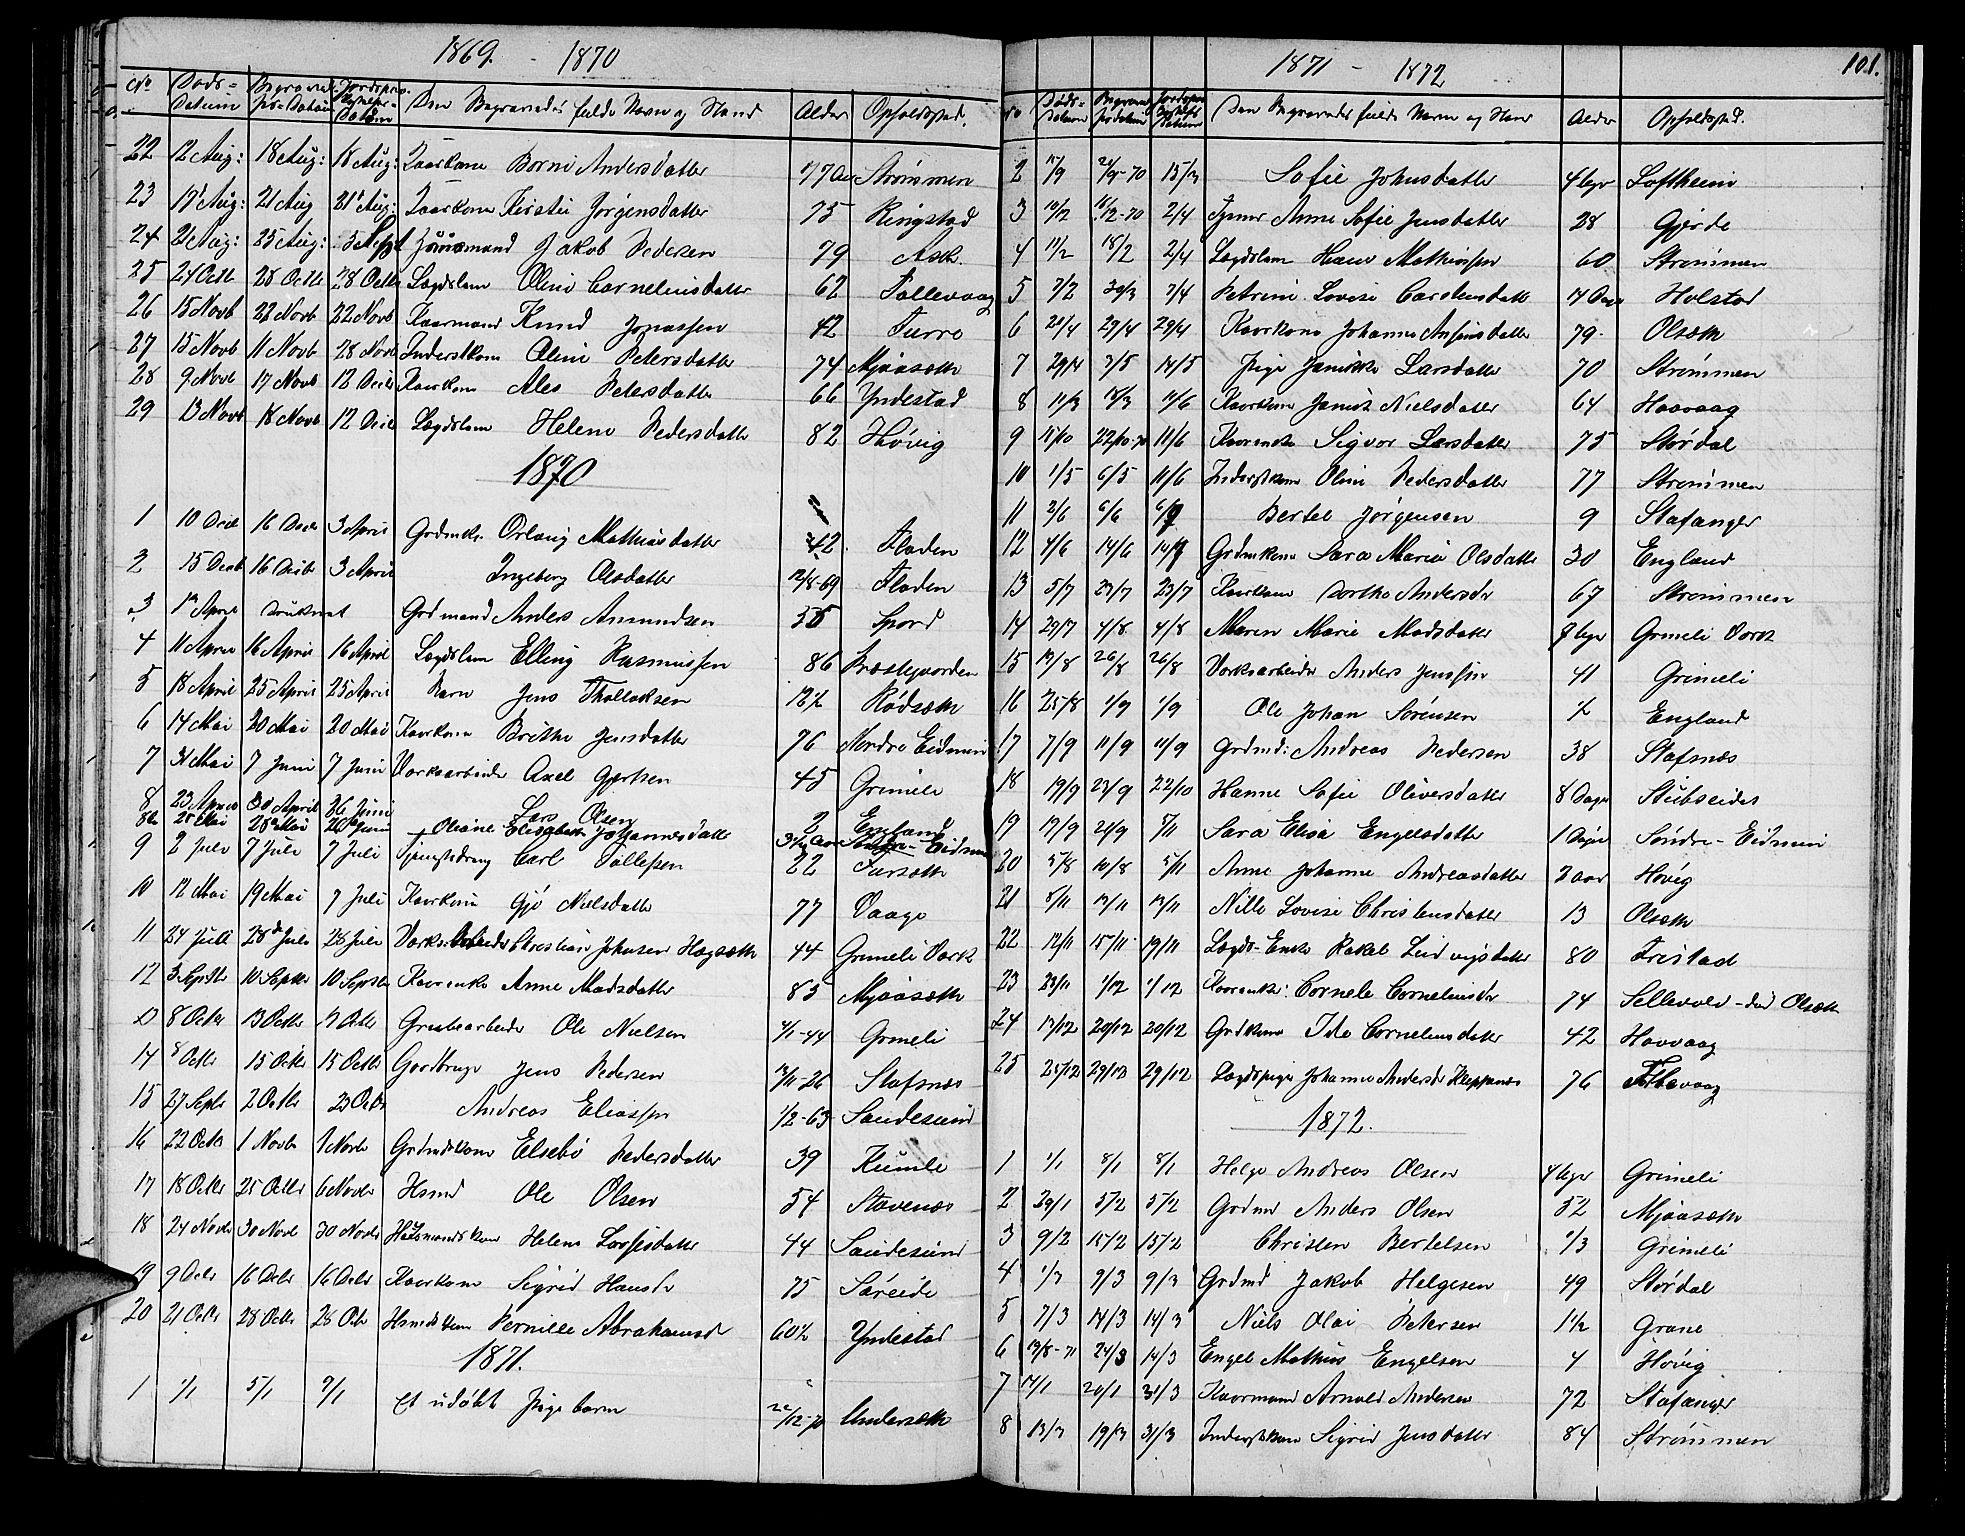 1869. - 1870
No Døds-Datum Begravelses-Datum Jordspaa-kastelses-Datum Den Begravedes fulde Navn og Stand Alder Opholdssted.
22 12 Aug: 18 Aug: 18 Aug: Kaarkone Borni Andersdatter 77 Aar Strømmen
23 17 Aug: 21 Aug 21 Aug: Kaarkone Kirsti Jørgensdatter 75 Ringstad
24 21 Aug: 25 Aug: 5 Sept Huusmand Jakob Pedersen 79 Ask.
25 24 Octb 28 Octbr 28 Octbr Lægdslem Olini Corneliusdatter 62 Tollevaag
26 15 Novb 22 Novb 22 Novb Kaarmand Knud Jonassen 42 Furre
27 15 Novb 11 Novb 28 Novb Inderstkone Olini Petersdatter 74 Mjaasæth
28 9 Novb 17 Novb 12 Decbr Kaarkone Ales Petersdatter 66 Yndestad
29 13 Novb 18 Novb 12 Decbr Lægdslem Helene Pedersdatter 82 Høvig
1870
1 10 Decb 16 Decbr 3 April Grdmk. Orlaug Mathiasdatter 42 Floden
2 15 Decb 16 Decbr 3 April Ingeborg Olsdatter 12/8-69 Floden
3 1 April Druknet Grdmand Anders Amundsen 35 Spord
4 11 April 16 April 16 April Lægdslem Elling Rasmussen 86 Præstegaarden
5 18 April 25 April 25 April Barn Jens Thollaksen 12½ Rødsæth
6 14 Mai 20 Mai 20 Mai Kaarkone Brithe Jensdatter 76 Nordre Eidmin
7 31 Mai 7 Juni 7 Juni Værksarbeider Axel Gjertsen 45 Grimeli
8 23 April 30 April 26 Juni Lars Olsen 2 England
8b 25 Mai 28 Mai 26 Juni Oliane Elisabeth Johannesdatter 3 Aar Søndre-Eidmin
9 2 Juli 7 Juli 7 Juli Tjenestedreng Carl Tollefsen 22 Furseth
10 12 Mai 19 Mai 7 Juli Kaarkone Gjø Nielsdatter 77 Vaage
11 24 Juli 28 Juli 28 Juli Værksarbeider Christian Johnsen Hagsæth 44 Grimeli Værk
12 3 Septbr 10 Septbr 10 Septbr Kaarenke Anne Madsdatter 83 Mjaasæth
13 8 Octbr 13 Octbr 9 Octbr Grubearbeider Ole Nielsen 7/1-44 Grimeli
14 8 Octbr 15 Octbr 15 Octbr Gardbruger Jens Pedersen 13/11-26 Stafsnæs
15 27 Septr 2 Octbr 23 Octbr Andreas Eliassen 1/2-63 Sandesund
16 22 Octbr 1 Novb 1 Novbr Grdmdskone Elsebø Pedersdatter 39 Humle
17 18 Octbr 25 Octbr 6 Novbr Hsmd Ole Olsen 54 Stavenæs
18 24 Novbr 30 Novb 30 Novbr Huusmandskone Helene Lassesdatter 44 Sandesund
19 9 Decbr 16 Decbr 16 Decbr Kaarkone Sigrid Hansdr 75 Søreide
20 21 Octbr 28 Octbr 28 Octbr Hsmdskone Pernille Abrahamsd 60½ Yndestad
1871.
1 1/1 5/1 9/1 Et udøbt Pigebarn 22/12-70 Undersæth
1871 - 1872 101.
No Døds-Datum Begravelsesdatum Jordspaakastelses Datum Den Begravedes fulde Navn og Stand Alder Opholdssted.
2 17/9 24/9-70 15/3 Sofie Johnsdatter 4 Uger Loftheim
3 10/12 16/12-70 2/4 Tjener Anne Sofie Jensdatter 28 Gjerde
4 11/2 18/2 2/4 Lægdslem Hans Mathiassen 60 Strømmen
5 7/2 30/3 7/4 Petrine Lovise Carstensdatter 14 Dage Holstad
6 21/4 29/4 29/4 Kaarkone Johanne Ansjensdatter 79 Olsæth
7 29/4 3/5 14/5 Pige Jannikke Larsdatter 70 Strømmen
8 11/3 18/3 11/6 Kaarkone Jannik Nielsdatter 64 Haavaag
9 15/10 22/10-70 11/6 Kaarenke Sigvor Larsdatter 75 Stordal
10 1/5 6/5 11/6 Inderstkone Olini Pedersdatter 77 Strømmen
11 2/6 6/6 6/7 Bertel Jørgensen 9 Stafanger
12 4/6 14/6 14/7 Grdmkone Sara Marie Olsdatter 30 England
13 5/7 23/7 23/7 Kaarkone Dorthe Andersdr 67 Strømmen
14 29/7 4/8 4/8 Maren Marie Madsdatter 7 Uger Grimeli Værk
15 19/8 26/8 26/8 Værksarbeider Anders Jenssen 41 Grimeli
16 25/8 1/9 1/9 Ole Johan Sørensen ½ England
17 7/9 11/9 11/9 Grdmd: Andreas Pedersen 38 Stafsnæs
18 19/9 23/9 22/10 Hanne Sofie Oliversdatter 8 Dage Stubseidet
19 19/9 24/9 5/11 Sara Elisa Engelsdatter 1 Døgn Søndre-Eidmin
20 5/8 10/8 5/11 Anne Johanne Andreasdatter 2 aar Høvig
21 8/11 13/11 13/11 Nille Lovise Christensdatter 13 Olsæth
22 12/11 15/11 19/11 Lægds-Enke Rakel Ludvigsdatter 80 Fristad
23 23/11 1/12 1/12 Kaarenke: Cornele Corneliusdr 74 Sellevold - ded Olsæth
24 13/12 20/12 20/12 Grdkone Ide Corneliusdatter 42 Haavaag
25 25/12 29/12 29/12 Lægdspige Johanne Andersdr Kleppenes 76 Tollevaag
1872.
1 1/1 8/1 8/1 Helge Andreas Olsen 4 Uger Grimeli
2 29/1 5/2 5/2 Grdmd Anders Olsen 52 Mjaasæth
3 9/2 15/2 15/2 Christen Bertelsen 1/3 Grimeli
4 1/3 9/3 9/3 Grdmd Jakob Helgesen 49 Stordal
5 7/3 14/3 14/3 Niels Olai Petersen 1½ Grane
6 19/8-71 24/3 14/3 Engel Mathias Engelsen 4 Høvig
7 14/1 20/1 31/3 Kaarmand Arnold Andersen 72 Stafanger
8 13/3 19/3 31/3 Inderstkone Sigrid Jensdatter 84 Strømmen